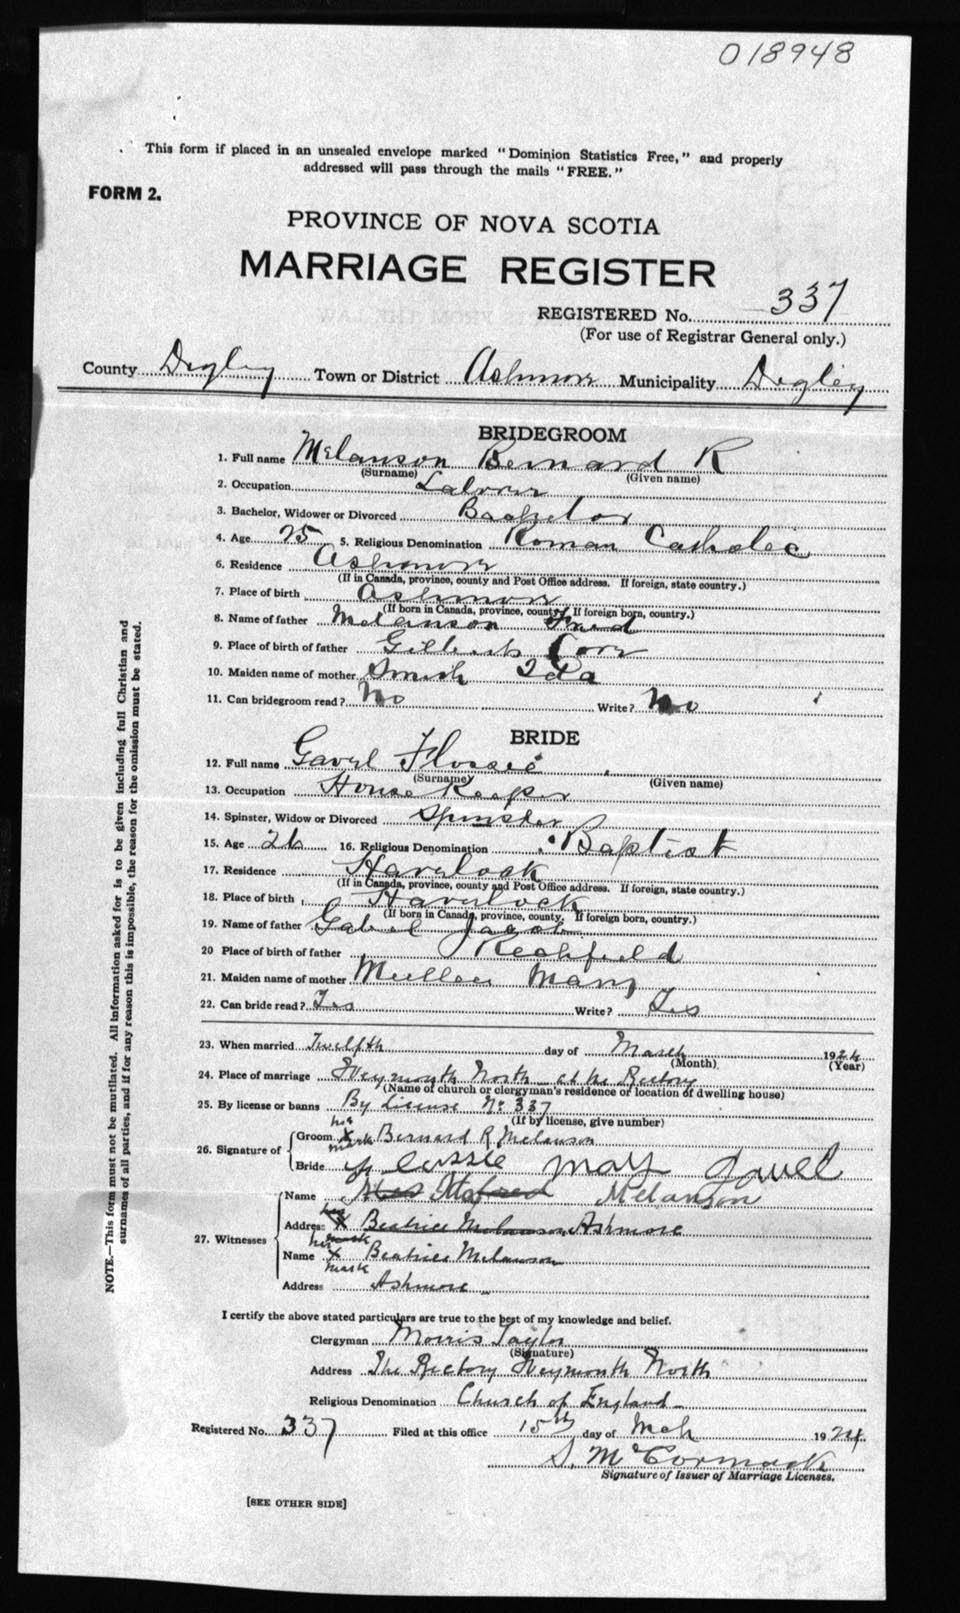 018948
This form if placed in an unsealed envelope marked "Dominion Statistics Free," and properly
addressed will pass through the mails "FREE."
FORM 2.
PROVINCE OF NOVA SCOTIA
MARRIAGE REGISTER
REGISTERED No. 337
(For use of Registrar General only.)
County Digby Town or District Ashmore Municipality Digby
BRIDEGROOM
1. Full name Melanson Bernard R
(Surname) (Given name)
2. Occupation Labour
3. Bachelor, Widower or Divorced Bachelor
4. Age 25 5. Religious Denomination Roman Catholic
6. Residence Ashmore
(If in Canada, province, county and Post Office address. If foreign, state country.)
7. Place of birth Ashmore
(If born in Canada, province, county. If foreign born, country.)
8. Name of father Melanson Fred
9. Place of birth of father Gilberts Cove
10. Maiden name of mother Smith Ida
11. Can bridegroom read? No Write? No
BRIDE
12. Full name Gavel Flossie
(Surname) (Given name)
13. Occupation House Keeper
14. Spinster, Widow or Divorced Spinster
15. Age 26 16. Religious Denomination Baptist
17. Residence Havelock
(If in Canada, province, county and Post Office address. If foreign, state country.)
18. Place of birth Havelock
(If born in Canada, province, county. If foreign born, country.)
19. Name of father Gabel Jacob
20 Place of birth of father Richfield
21. Maiden name of mother Mullen Mary
22. Can bride read? Yes Write? Yes
23. When married Twelfth day of March 1924
(Month) (Year)
24. Place of marriage Weymouth North at the Rectory
(Name of church or clergyman's residence or location of dwelling house)
25. By license or banns By License No 337
(If by license, give number)
26. Signature of
Groom his X mark Bernard R. Melanson
Bride Flossie May Gavel
27. Witnesses
Name Melanson
Address her X mark Beatrice Melanson Ashmore
Name her X mark Beatrice Melanson
Address Ashmore
I certify the above stated particulars are true to the best of my knowledge and belief.
Clergyman Morris Taylor
(Signature)
Address The Rectory Weymouth North
Religious Denomination Church of England
Registered No. 337 Filed at this office 15th day of Mch 1924.
S. McCormack
Signature of Issuer of Marriage Licenses.
[SEE OTHER SIDE]
NOTE.—This form must not be mutilated. All information asked for is to be given including full Christian and
surnames of all parties, and if for any reason this is impossible, the reason for the omission must be stated.